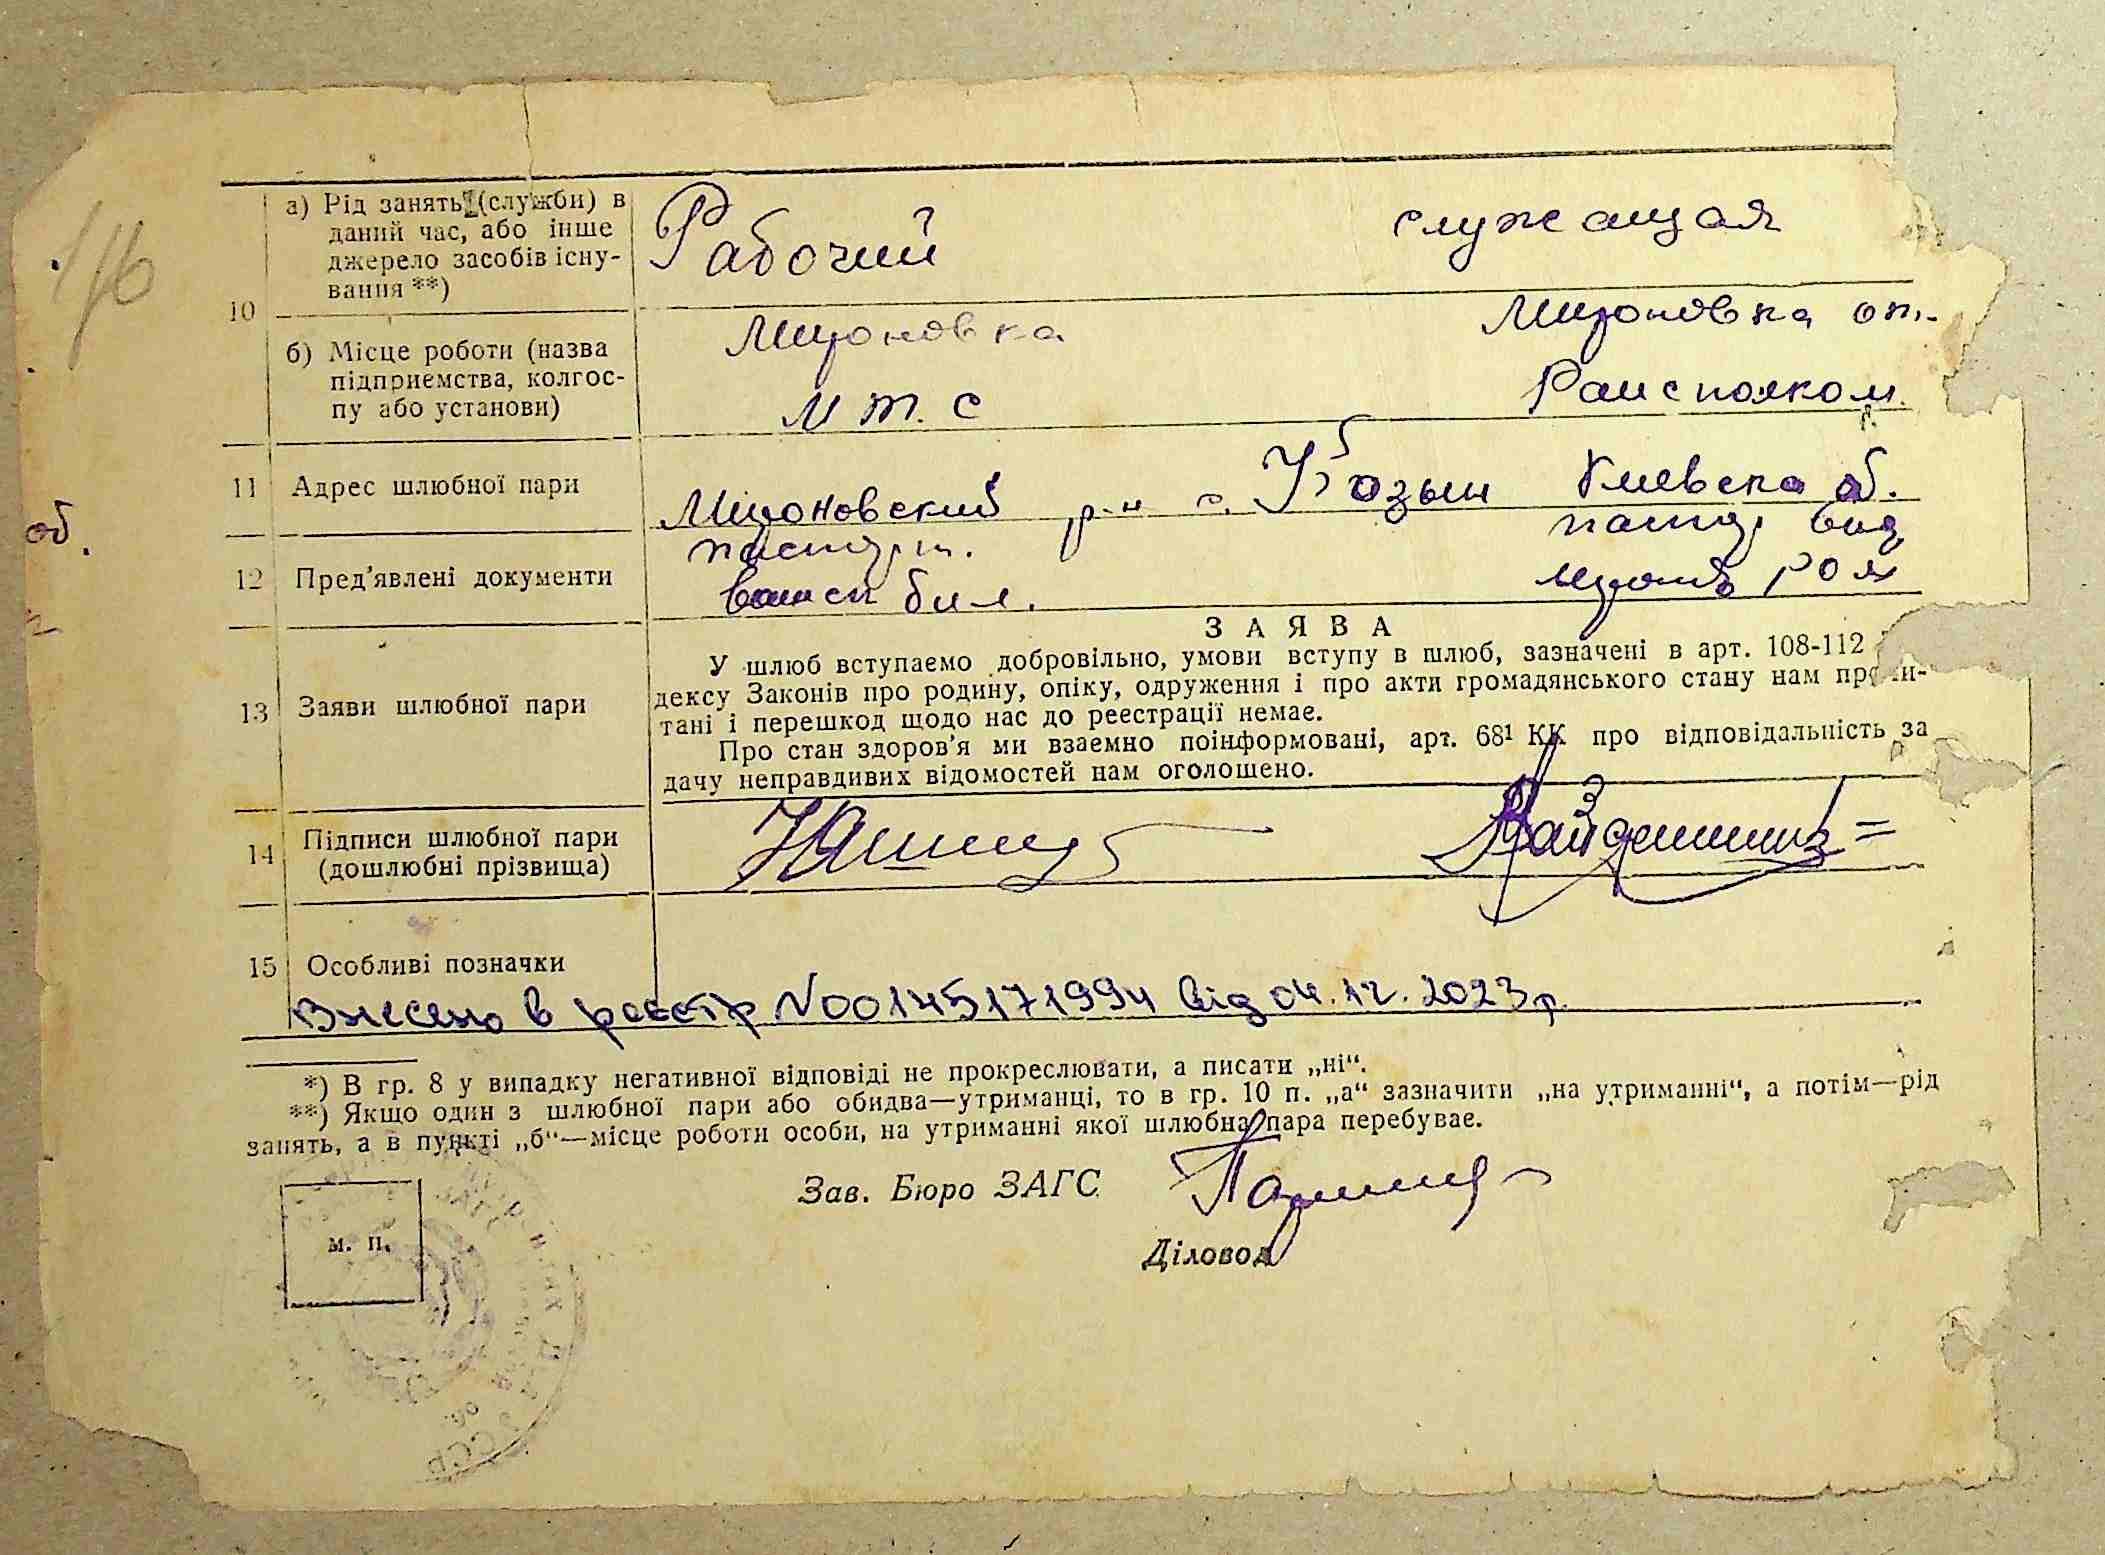 а) Рід занять (службы) в
даний час, або інше
джерело засобів існу-
вання **)
Рабочий
служащая
10
б) Місце роботи (назва
підприемства, колгос-
пу або установи)
Мироновка
М т. с
Мироновка
Раисполком.
11 Адрес шлюбної пари
Мироновский р-н с. Козын Киевска об.
об.
12 Пред'явлені документи
паспорт.
бил.
ЗАЯВА
13 Заяви шлюбної пари
У шлюб вступаемо добровільно, умови вступу в шлюб, зазначені в арт. 108-112
дексу Законів про родину, опіку, одруження і про акти громадянського стану нам
тані і перешкод щодо нас до реестрації немає.
Про стан здоров'я ми взаемно поінформовані, арт. 68¹ КК про відповідальність за
дачу неправдивих відомостей нам оголошено.
14 Підписи шлюбної пари
(дошлюбні прізвища)
15 Особливі позначки
Внесено в реєстр N00145171994 від 04.12.2023р.
*) В гр. 8 у випадку негативної відповіді не прокреслювати, а писати „ні“.
**) Якщо один з шлюбної пари або обидва—утриманці, то в гр. 10 п. „а“ зазначити „на утриманні“, а потім—рід
занять, а в пункті „б“—місце роботи особи, на утриманні якої шлюбна пара перебувае.
Зав. Бюро ЗАГС
Діловод
м. п.